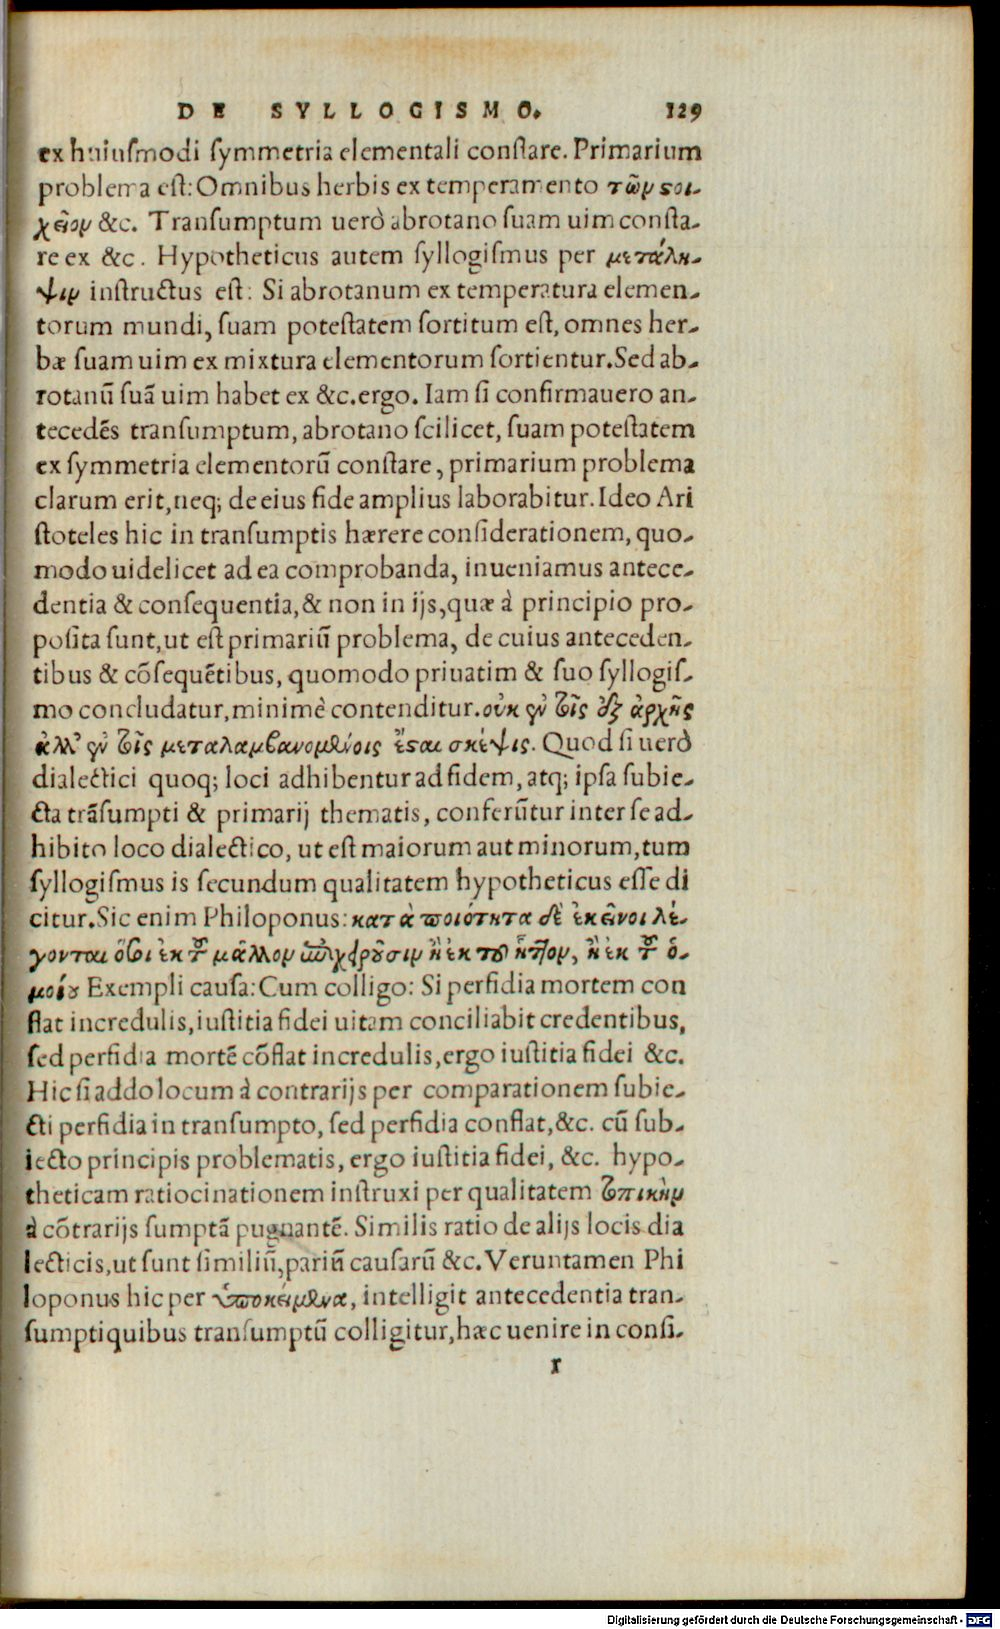 DE SYLLOGISMO. 129
ex huiuſmodi ſymmetria elementali conſtare. Primarium
problema eſt: Omnibus herbis ex temperamento τῶν ϛοι-
χείων &c. Tranſumptum uerò abrotano ſuam uim conſta-
re ex &c. Hypotheticus autem ſyllogiſmus per μετάλη-
ψιν inſtructus eſt: Si abrotanum ex temperatura elemen-
torum mundi, ſuam poteſtatem ſortitum eſt, omnes her-
bæ ſuam uim ex mixtura elementorum ſortientur. Sed ab-
rotanũ ſuã uim habet ex &c. ergo. Iam ſi confirmauero an-
tecedẽs tranſumptum, abrotano ſcilicet, ſuam poteſtatem
ex ſymmetria elementorũ conſtare, primarium problema
clarum erit, neq; de eius fide amplius laborabitur. Ideo Ari
ſtoteles hic in tranſumptis hærere conſiderationem, quo-
modo uidelicet ad ea comprobanda, inueniamus antece-
dentia & conſequentia, & non in ijs, quæ à principio pro-
poſita ſunt, ut eſt primariũ problema, de cuius anteceden-
tibus & cõſequẽtibus, quomodo priuatim & ſuo ſyllogiſ-
mo concludatur, minimè contenditur. οὐκ ἐν τοῖς ἐξ ἀρχῆς
ἀλλ’ ἐν τοῖς μεταλαμβανομένοις ἔϛαι σκέψις. Quod ſi uerò
dialectici quoq; loci adhibentur ad fidem, atq; ipſa ſubie-
cta trãſumpti & primarij thematis, conferũtur inter ſe ad-
hibito loco dialectico, ut eſt maiorum aut minorum, tum
ſyllogiſmus is ſecundum qualitatem hypotheticus eſſe di
citur. Sic enim Philoponus: κατὰ ποιότητα δὲ ἐκεῖνοι λέ-
γονται ὅσοι ἐκ τοῦ μᾶλλον ἐπιχειροῦσιν ἢ ἐκ τοῦ ἧττον, ἢ ἐκ τοῦ ὁ-
μοίου Exempli cauſa: Cum colligo: Si perfidia mortem con
flat incredulis, iuſtitia fidei uitam conciliabit credentibus,
ſed perfidia mortẽ cõflat incredulis, ergo iuſtitia fidei &c.
Hic ſi addo locum à contrarijs per comparationem ſubie-
cti perfidia in tranſumpto, ſed perfidia conflat, &c. cũ ſub-
iecto principis problematis, ergo iuſtitia fidei, &c. hypo-
theticam ratiocinationem inſtruxi per qualitatem τοπικὴν
à cõtrarijs ſumptã pugnantẽ. Similis ratio de alijs locis dia
lecticis, ut ſunt ſimiliũ, pariũ cauſarũ &c. Veruntamen Phi
loponus hic per ὑποκείμενα, intelligit antecedentia tran-
ſumpti quibus tranſumptũ colligitur, hæc uenire in conſi-
r
Digitalisierung gefördert durch die Deutsche Forschungsgemeinschaft - DFG